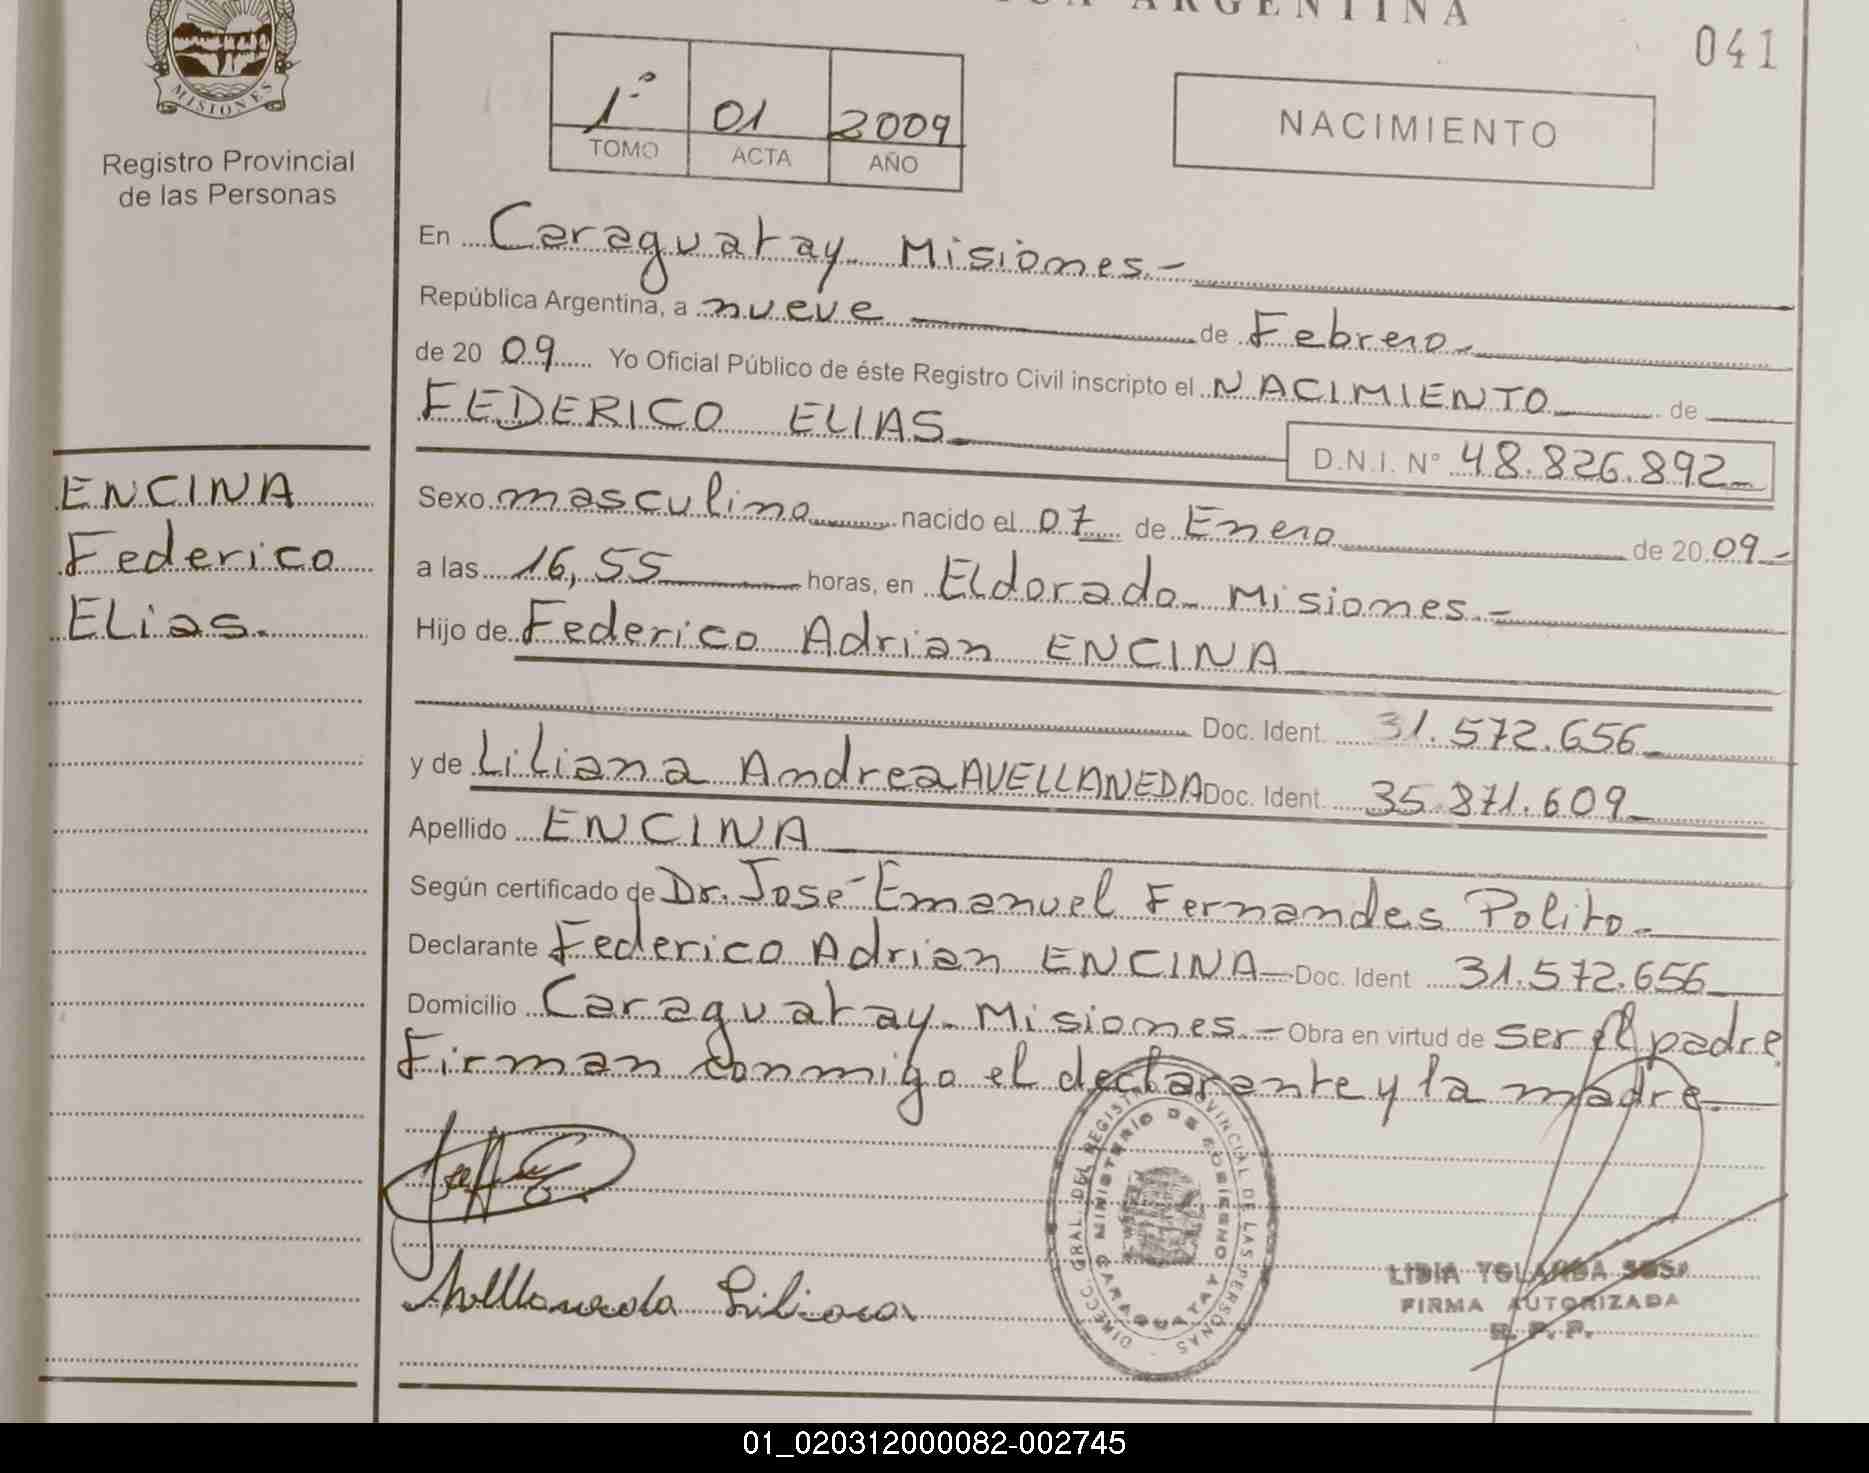 ARGENTINA
041
MISIONES
Registro Provincial
de las Personas
1º 01 2009
TOMO ACTA AÑO
NACIMIENTO
En Caraguatay - Misiones.-
República Argentina, a nueve de Febrero.-
de 20 09 Yo Oficial Público de éste Registro Civil inscripto el NACIMIENTO de
FEDERICO ELIAS
D.N.I. Nº 48.826.892
ENCINA
Federico
ELias.
Sexo masculino nacido el 07 de Enero de 20 09.-
a las 16,55 horas, en Eldorado - Misiones.-
Hijo de Federico Adrian ENCINA
Doc. Ident. 31.572.656
y de Liliana Andrea AVELLANEDA Doc. Ident. 35.871.609
Apellido ENCINA
Según certificado de Dr. José Emanuel Fernandes Polito.-
Declarante Federico Adrian ENCINA - Doc. Ident 31.572.656
Domicilio Caraguatay - Misiones.- Obra en virtud de ser el padre
Firman conmigo el declarante y la madre.
DIRECC. GRAL. DEL REGISTRO PROVINCIAL DE LAS PERSONAS -
MINISTERIO DE GOBIERNO
CARAGUATAY
Avellaneda Liliana
LIDIA YOLANDA SOSA
FIRMA AUTORIZADA
R. P. P.
01_020312000082-002745